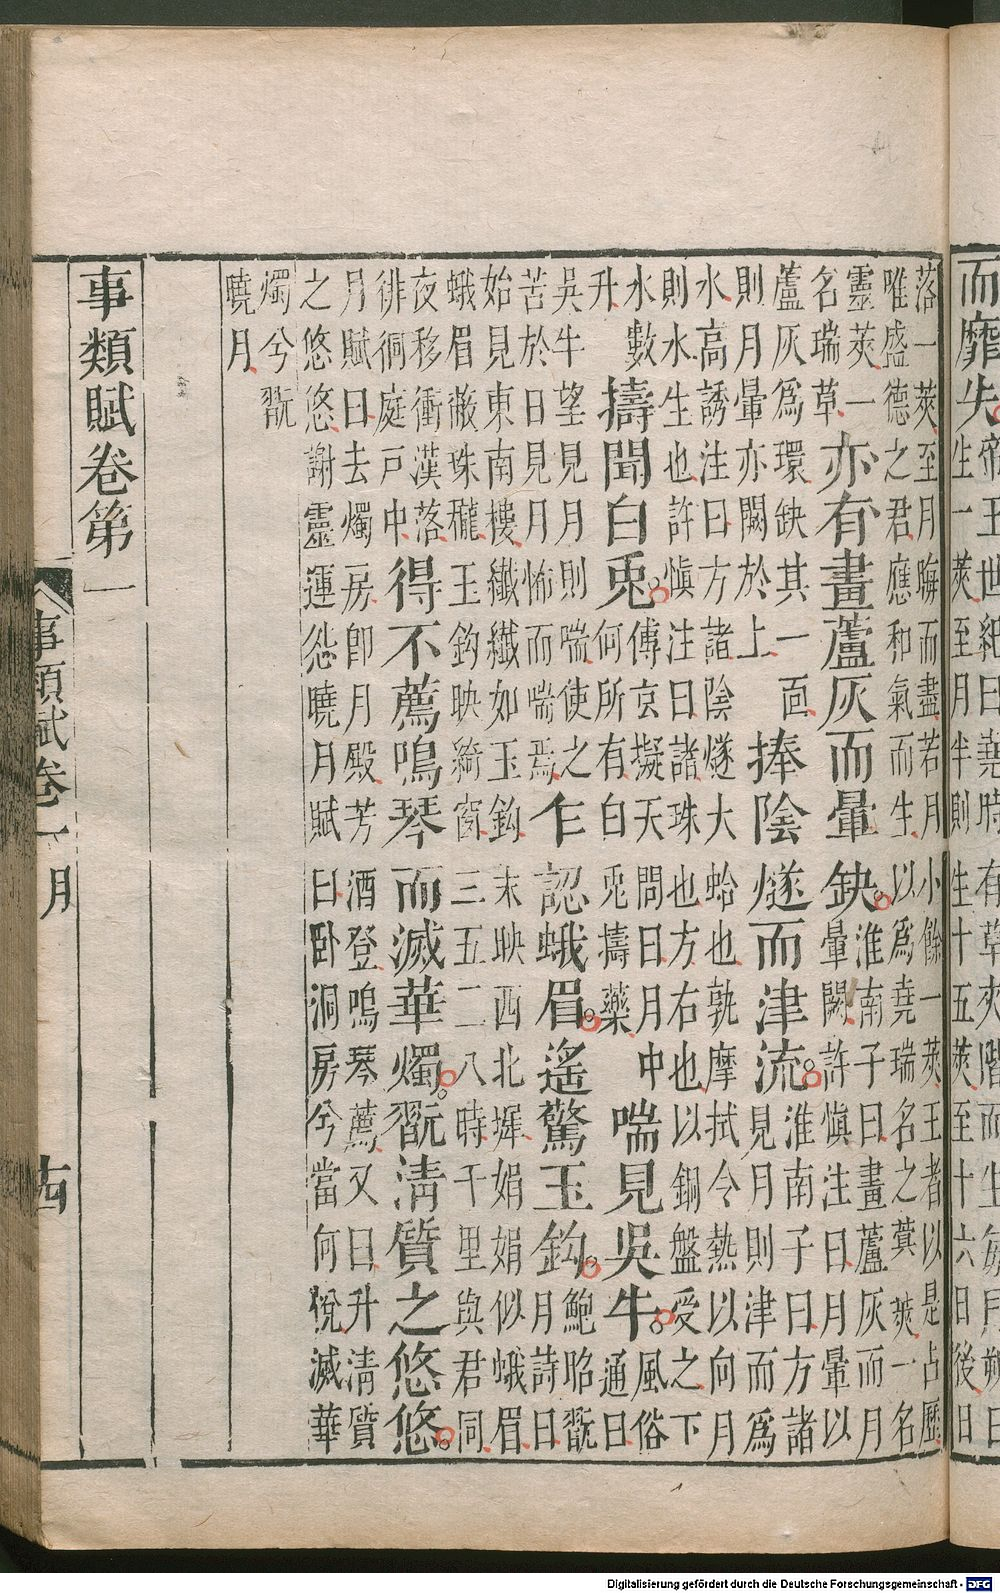 而靡失帝王世紀曰堯時有草夾階而生每月朔日
生一莢至月半則生十五莢至十六日後日
落一莢至月晦而盡若月小餘一莢王者以是占歷
唯盛德之君應和氣而生以為堯瑞名之蓂莢一名
靈莢一
名瑞草
亦有畫蘆灰而暈缺。
淮南子曰畫蘆灰而月
暈闕許慎注曰月暈以
蘆灰為環缺其一面
則月暈亦闕於上
捧陰燧而津流。
淮南子曰方諸
見月則津而為
水高誘注曰方諸陰燧大蛤也孰摩拭令熱以向月
則水生也許慎注曰諸珠也方右也以銅盤受之下
水數
升
擣聞白兎。
傅京擬天問曰月中
何所有白兎擣藥
喘見吳牛。
風俗
通曰
吳牛望見月則喘使之
苦於日見月怖而喘焉
乍認蛾眉。遙驚玉鈎。
鮑昭翫
月詩曰
始見東南樓纖纖如玉鈎末映西北墀娟娟似蛾眉
蛾眉蔽珠櫳玉鈎映綺窗三五二八時千里與君同
夜移衝漢落
徘徊庭戶中
得不薦鳴琴而滅華燭。翫清質之悠悠。
月賦曰去燭房即月殿芳酒登鳴琴薦又曰升清質
之悠悠謝靈運怨曉月賦曰臥洞房兮當何悅滅華
燭兮翫
曉月
事類賦卷第一
事類賦卷一月 十四
Digitalisierung gefördert durch die Deutsche Forschungsgemeinschaft - DFG